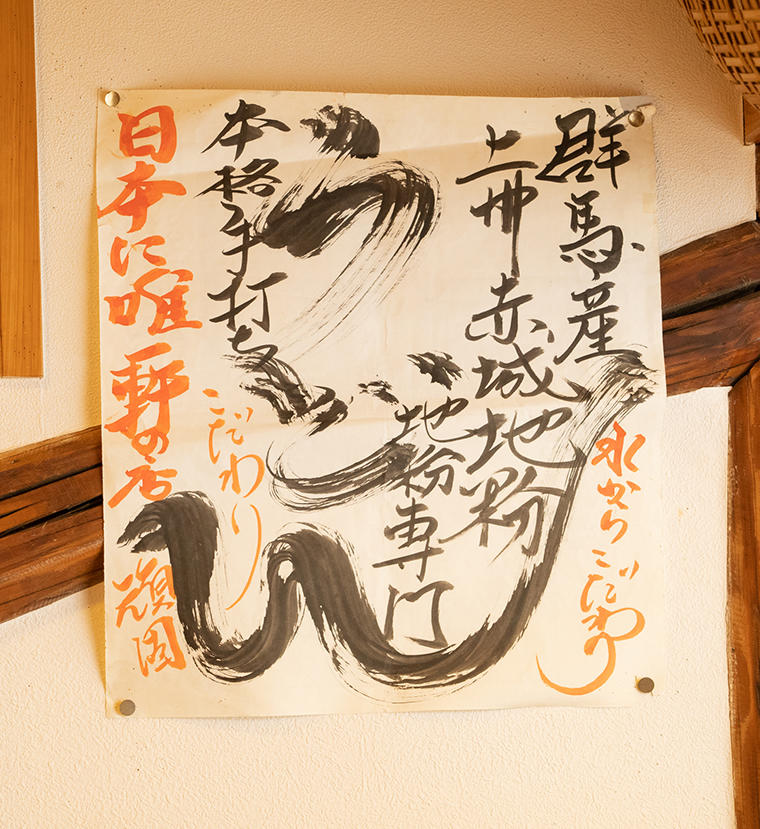 群馬産
上州赤城地粉
地粉専門
水からこだわり
うどん
本格手打ち
こだわり
日本に唯一軒の店
頑固